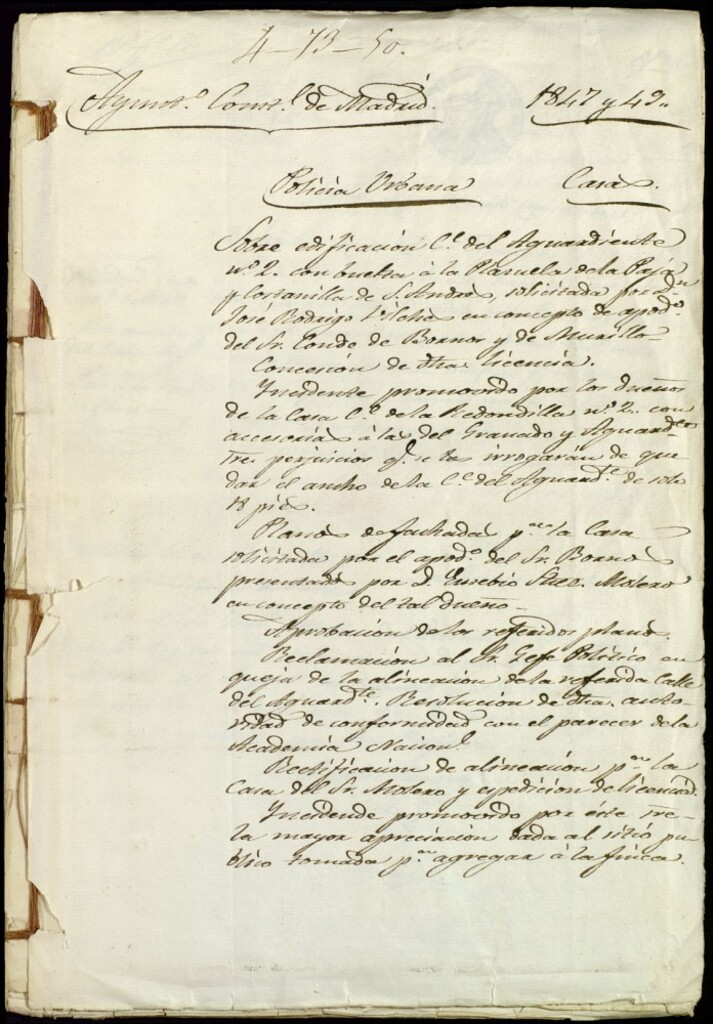 4-73-50.
Ayunt.º Const.l de Madrid. 1847 y 49..
Policia Urbana Casas.
Sobre edificacion C.e del Aguardiente
nº 2. con buelta à la Plazuela de la Paja
y Costanilla de S. Andres, solicitada por d.n
José Rodrigo Vilches en concepto de apod.º
del Sr. Conde de Bornos y de Murillo-
Concesion de dha. licencia.
Yncidente promovido por los dueños
de la Casa C.e de la Redondilla nº 2. con
accesorias à las del Granado y Aguard.te
sre. perjuicios q.e se les irrogaràn de que
dar el ancho de la C.e del Aguard.te de solo
18 pies.
Planos de fachadas p.ra la Casa
solicitada por el apod.º del Sr. Bornos
presentados por D. Eusebio Molero
en concepto del tal dueño-
Aprobacion de los referidos planos.
Reclamacion al Sr. Gefe Politico en
queja de la alineacion de la referida Calle
del Aguard.te. Resolucion de dha. auto-
ridad de conformidad con el parecer de la
Academia Nacion.l
Rectificacion de alineacion p.ra la
Casa del Sr. Molero y espedicion de licencia.
Yncidende promovido por éste sre-
la mayor apreciacion dada al sitio pu
blico tomado p.ra agregar à la finca.